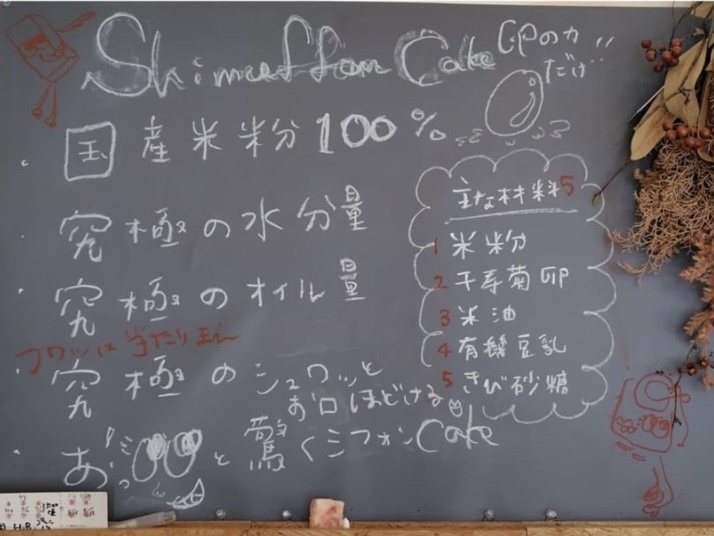 Shimuffon Cake
卵の力だけ!!
国産米粉分100%
究極の水分量
究極のオイル量
フワッは当たり前
究極のシュワッと
お口ほどける
おっと驚くシフォンCake
主な材料5
1 米粉
2 千寿菊卵
3 米油
4 有機豆乳
5 きび砂糖